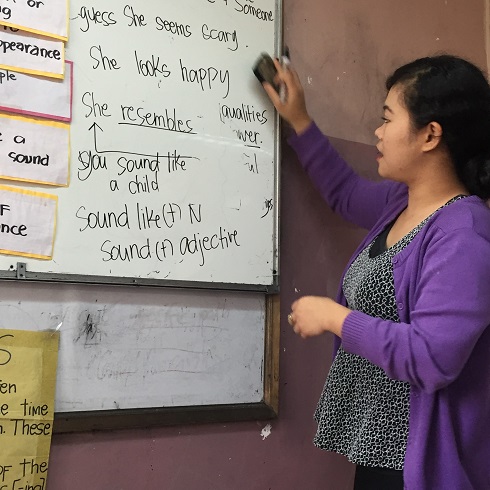 or
Someone
guess She seems scary.
ppearance
She looks happy
ple
She resembles qualities
e a
sound
You sound like
a child
F
nce
Sound like(f) N
Sound(f) adjective
S
en
e time
n. These
of the